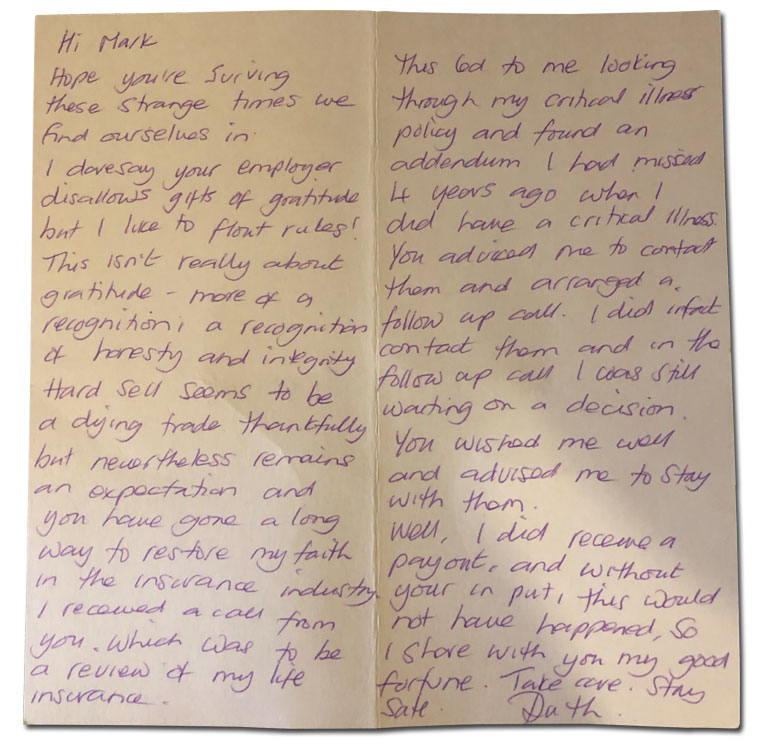 Hi Mark
Hope you're Surviving
these strange times we
find ourselves in.
I daresay your employer
disallows gifts of gratitude
but I like to flout rules!
This isn't really about
gratitude - more of a
recognition; a recognition
of honesty and integrity
Hard sell seems to be
a dying trade thankfully
but nevertheless remains
an expectation and
you have gone a long
way to restore my faith
in the insurance industry
I received a call from
you. which was to be
a review of my life
insurance.
This led to me looking
through my critical illness
policy and found an
addendum I had missed
4 years ago when I
did have a critical illness.
You adviced me to contact
them and arranged a
follow up call. I did infact
contact them and in the
follow up call I was still
waiting on a decision.
You wished me well
and advised me to stay
with them.
Well, I did receive a
payout, and without
your in put, this would
not have happened, So
I share with you my good
fortune. Take care. Stay
Safe.